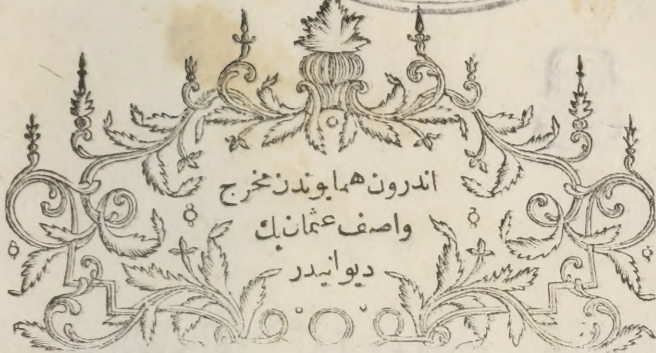 اندرون همايوندن مخرج
واصف عثمان بك
ديوانيدر